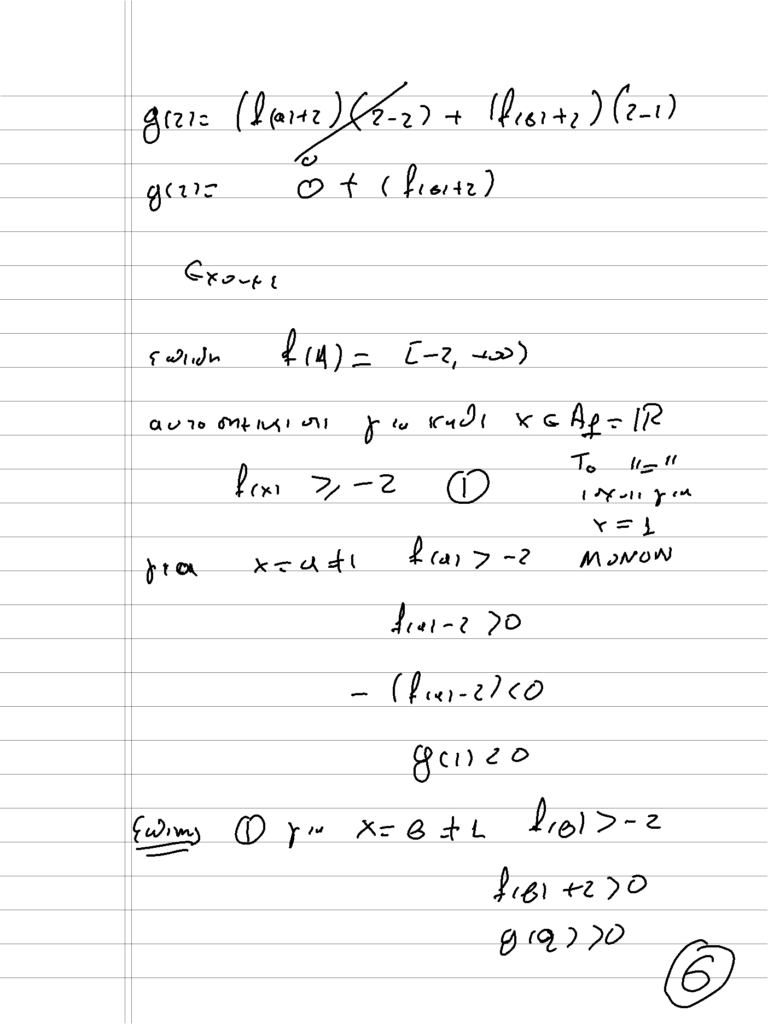 g(2) = (f(α)+2)(2-2) + (f(β)+2)(2-1)
0
g(2) = 0 + (f(β)+2)
Έχουμε
επειδή f(A) = [-2, +∞)
αυτό σημαίνει ότι για κάθε x ∈ Af = ℝ
f(x) ≥ -2 ①
Το "="
ισχύει για
x = 1
ΜΟΝΟΝ
για x = α ≠ 1 f(α) > -2
f(α) - 2 > 0
- (f(α) - 2) < 0
g(1) < 0
Επίσης ① για x = β ≠ 1 f(β) > -2
f(β) + 2 > 0
g(2) > 0
6